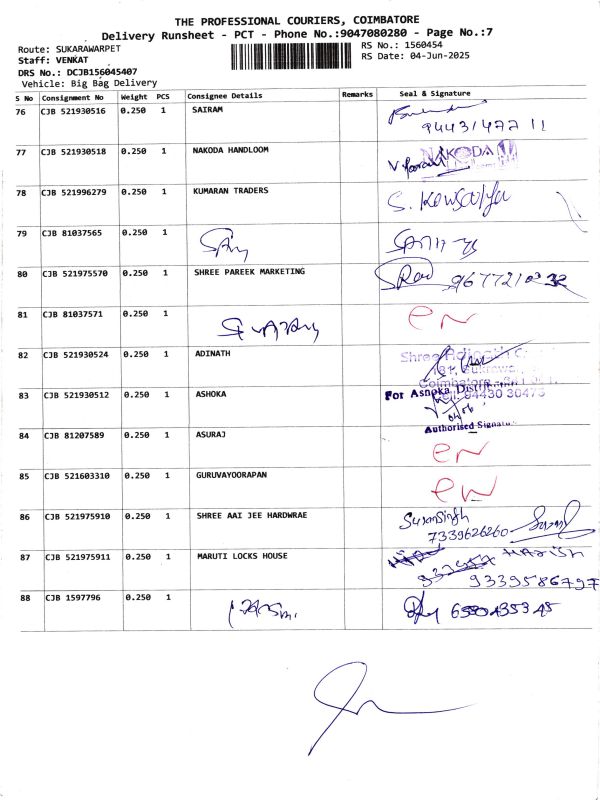 THE PROFESSIONAL COURIERS, COIMBATORE
Delivery Runsheet - PCT - Phone No.:9047080280 - Page No.:7
Route: SUKARAWARPET
RS No.: 1560454
Staff: VENKAT
RS Date: 04-Jun-2025
DRS No.: DCJB156045407
Vehicle: Big Bag Delivery
S No Consignment No Weight PCS Consignee Details Remarks Seal & Signature
76 CJB 521930516 0.250 1 SAIRAM
77 CJB 521930518 0.250 1 NAKODA HANDLOOM NAKODA
78 CJB 521996279 0.250 1 KUMARAN TRADERS
79 CJB 81037565 0.250 1
80 CJB 521975570 0.250 1 SHREE PAREEK MARKETING
81 CJB 81037571 0.250 1 en
82 CJB 521930524 0.250 1 ADINATH
Shree Adinath
83 CJB 521930512 0.250 1 ASHOKA For Ashoka
Authorised
84 CJB 81207589 0.250 1 ASURAJ en
85 CJB 521603310 0.250 1 GURUVAYOORAPAN en
86 CJB 521975910 0.250 1 SHREE AAI JEE HARDWRAE
7339626260
87 CJB 521975911 0.250 1 MARUTI LOCKS HOUSE HARISH
9339586797
88 CJB 1597796 0.250 1